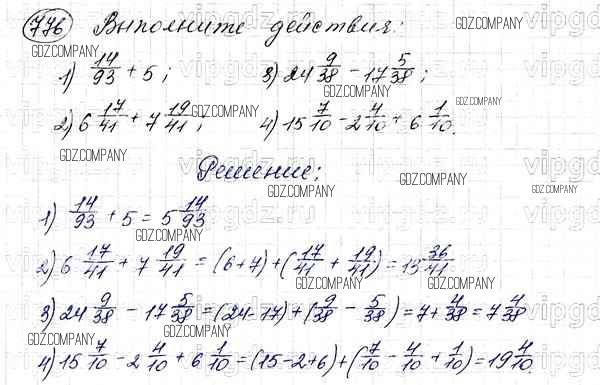 776 Выполните действия:
1) 14/93 + 5; 3) 24 9/38 - 17 5/38;
2) 6 17/41 + 7 19/41; 4) 15 7/10 - 2 4/10 + 6 1/10.
Решение:
1) 14/93 + 5 = 5 14/93
2) 6 17/41 + 7 19/41 = (6+7) + (17/41 + 19/41) = 13 36/41
3) 24 9/38 - 17 5/38 = (24-17) + (9/38 - 5/38) = 7 + 4/38 = 7 4/38
4) 15 7/10 - 2 4/10 + 6 1/10 = (15-2+6) + (7/10 - 4/10 + 1/10) = 19 4/10